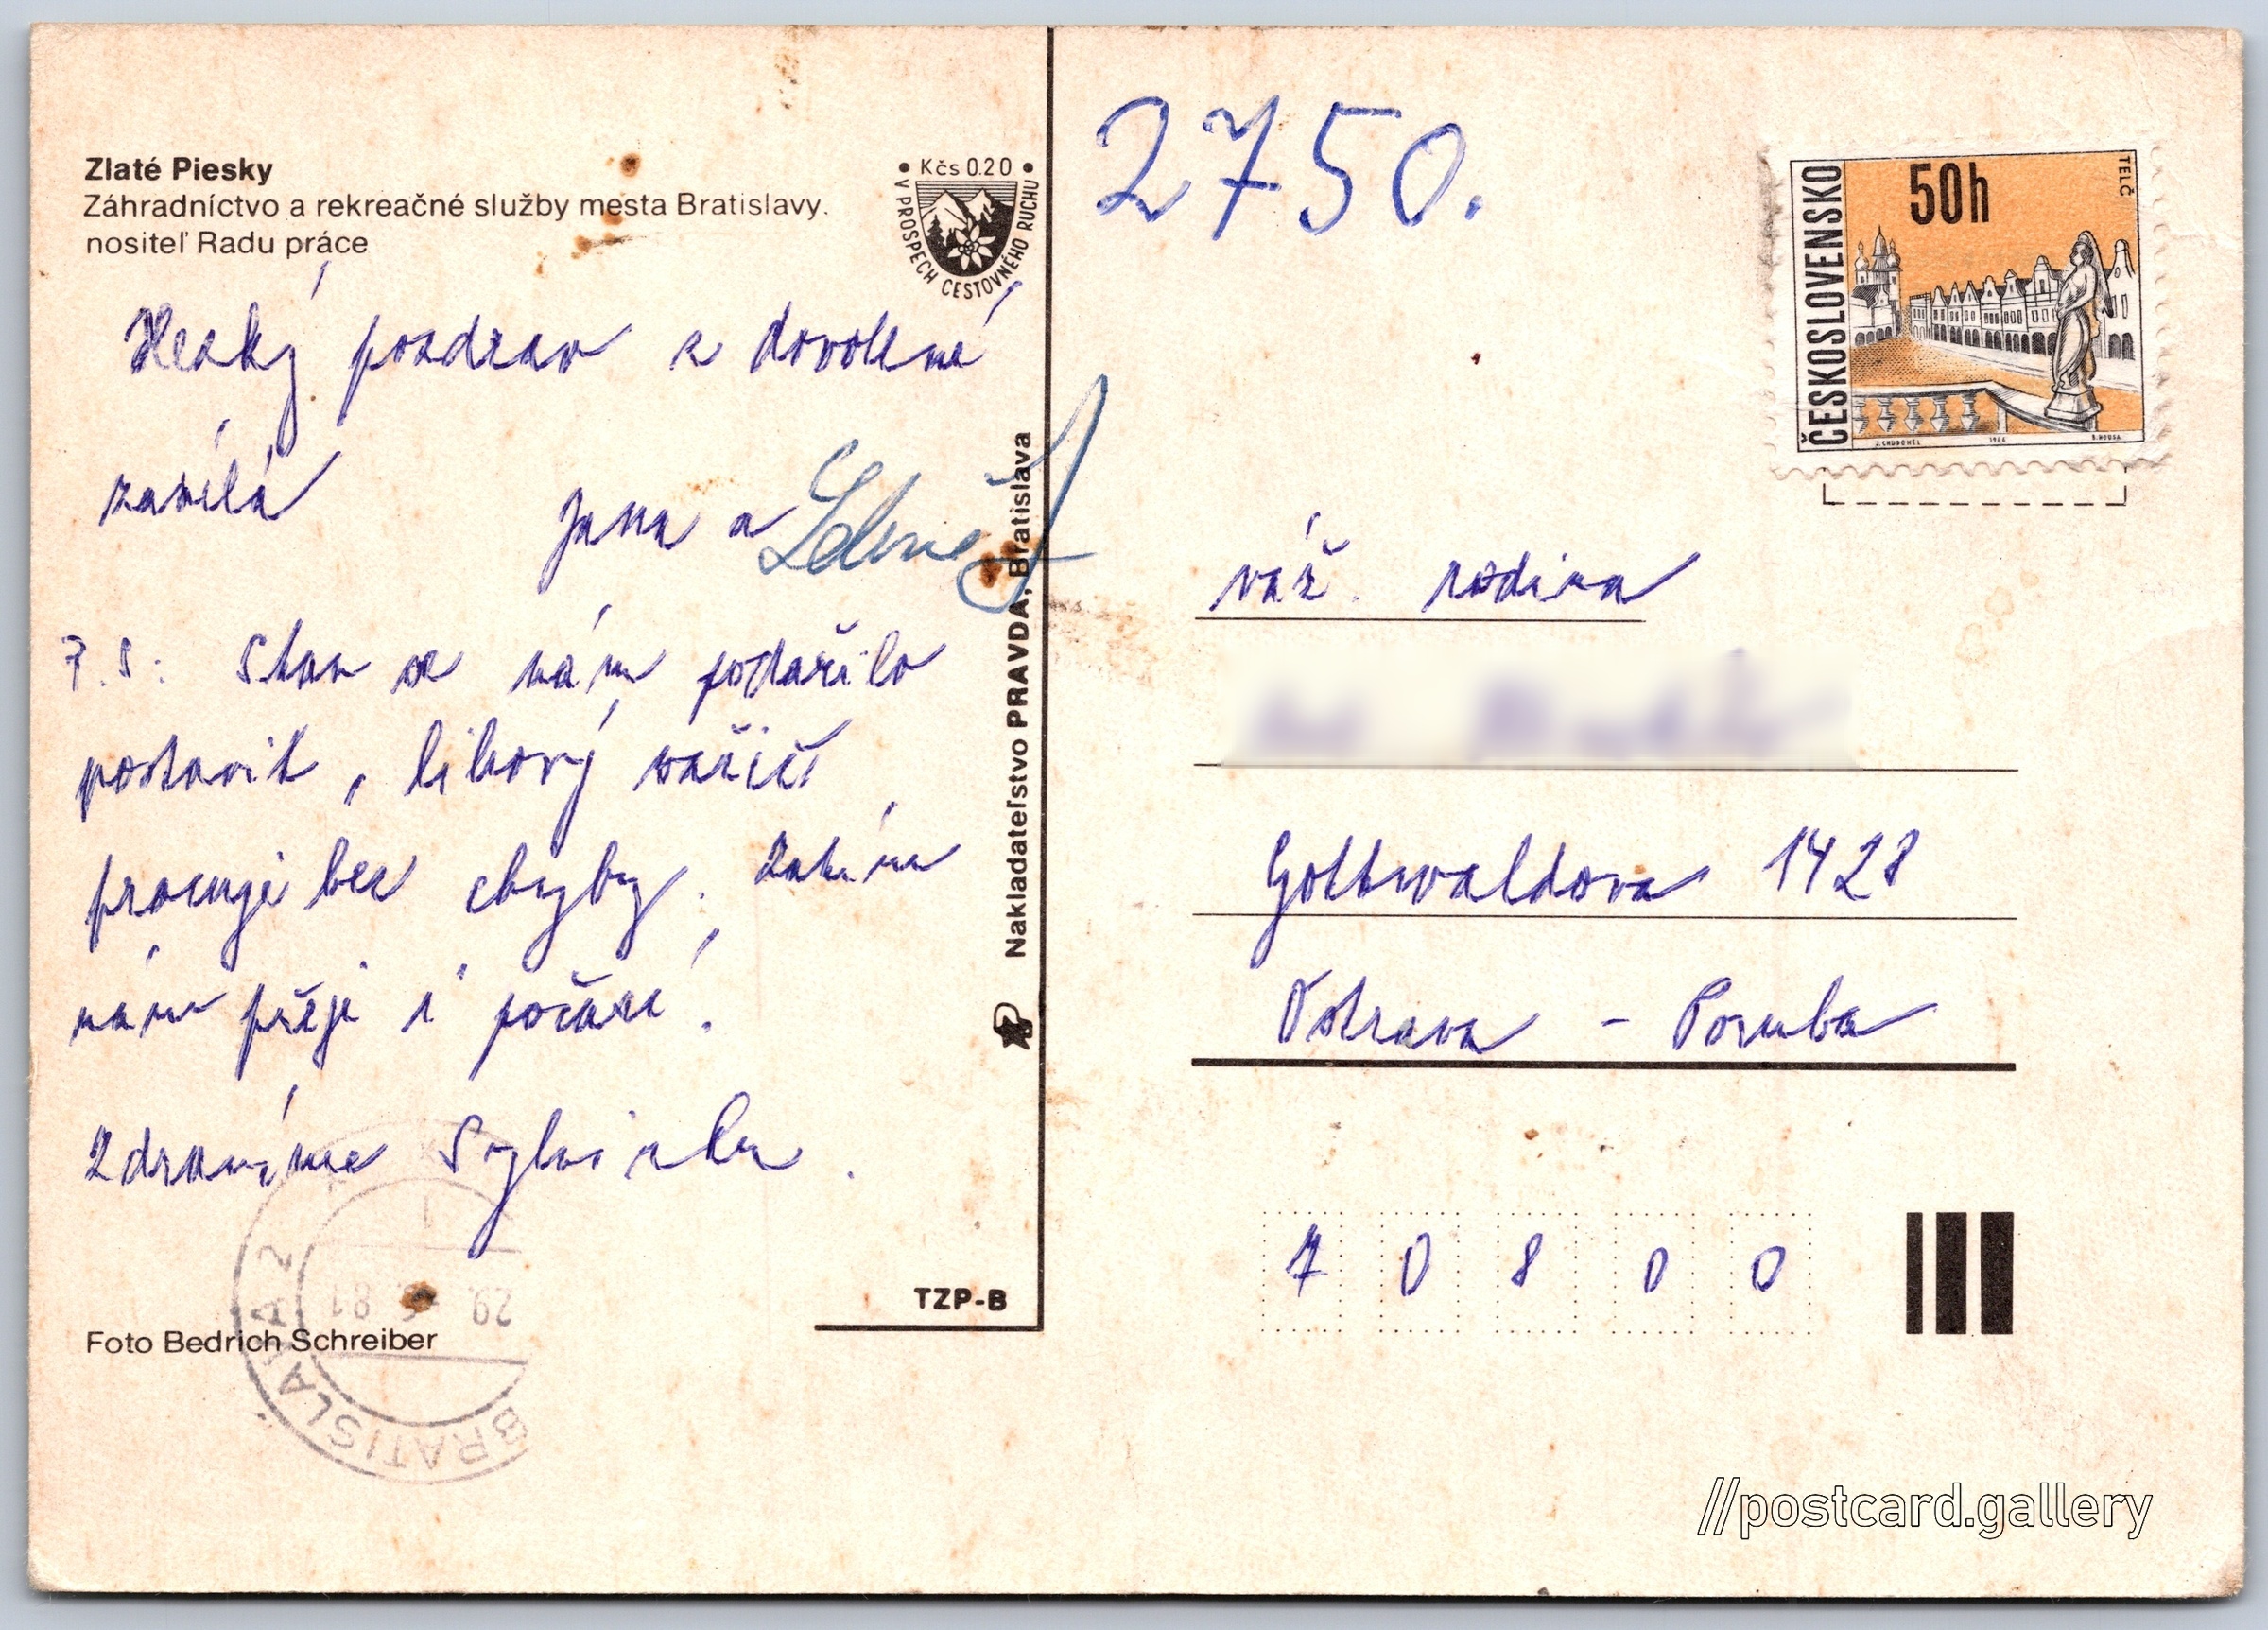 Zlaté Piesky
Záhradníctvo a rekreačné služby mesta Bratislavy.
nositeľ Radu práce
• Kčs 0.20 •
V PROSPECH CESTOVNÉHO RUCHU
Hezký pozdrav z dovolené
zasílá Jana a Zdeněk
P.S: Stan se nám podařilo
postavit, lihový vařič
pracuje bez chyby. Zatím
nám přeje i počásí.
Zdravíme Sylvinku.
Foto Bedrich Schreiber
TZP-B
Nakladateľstvo PRAVDA, Bratislava
BRATISLAVA 2
29. -5. 81
2750.
ČESKOSLOVENSKO
50h
TELČ
J. CHUDOMEL 1966 B. HOUSA
váž. rodina
Gottwaldova 1428
Ostrava - Poruba
7 0 8 0 0
//postcard.gallery